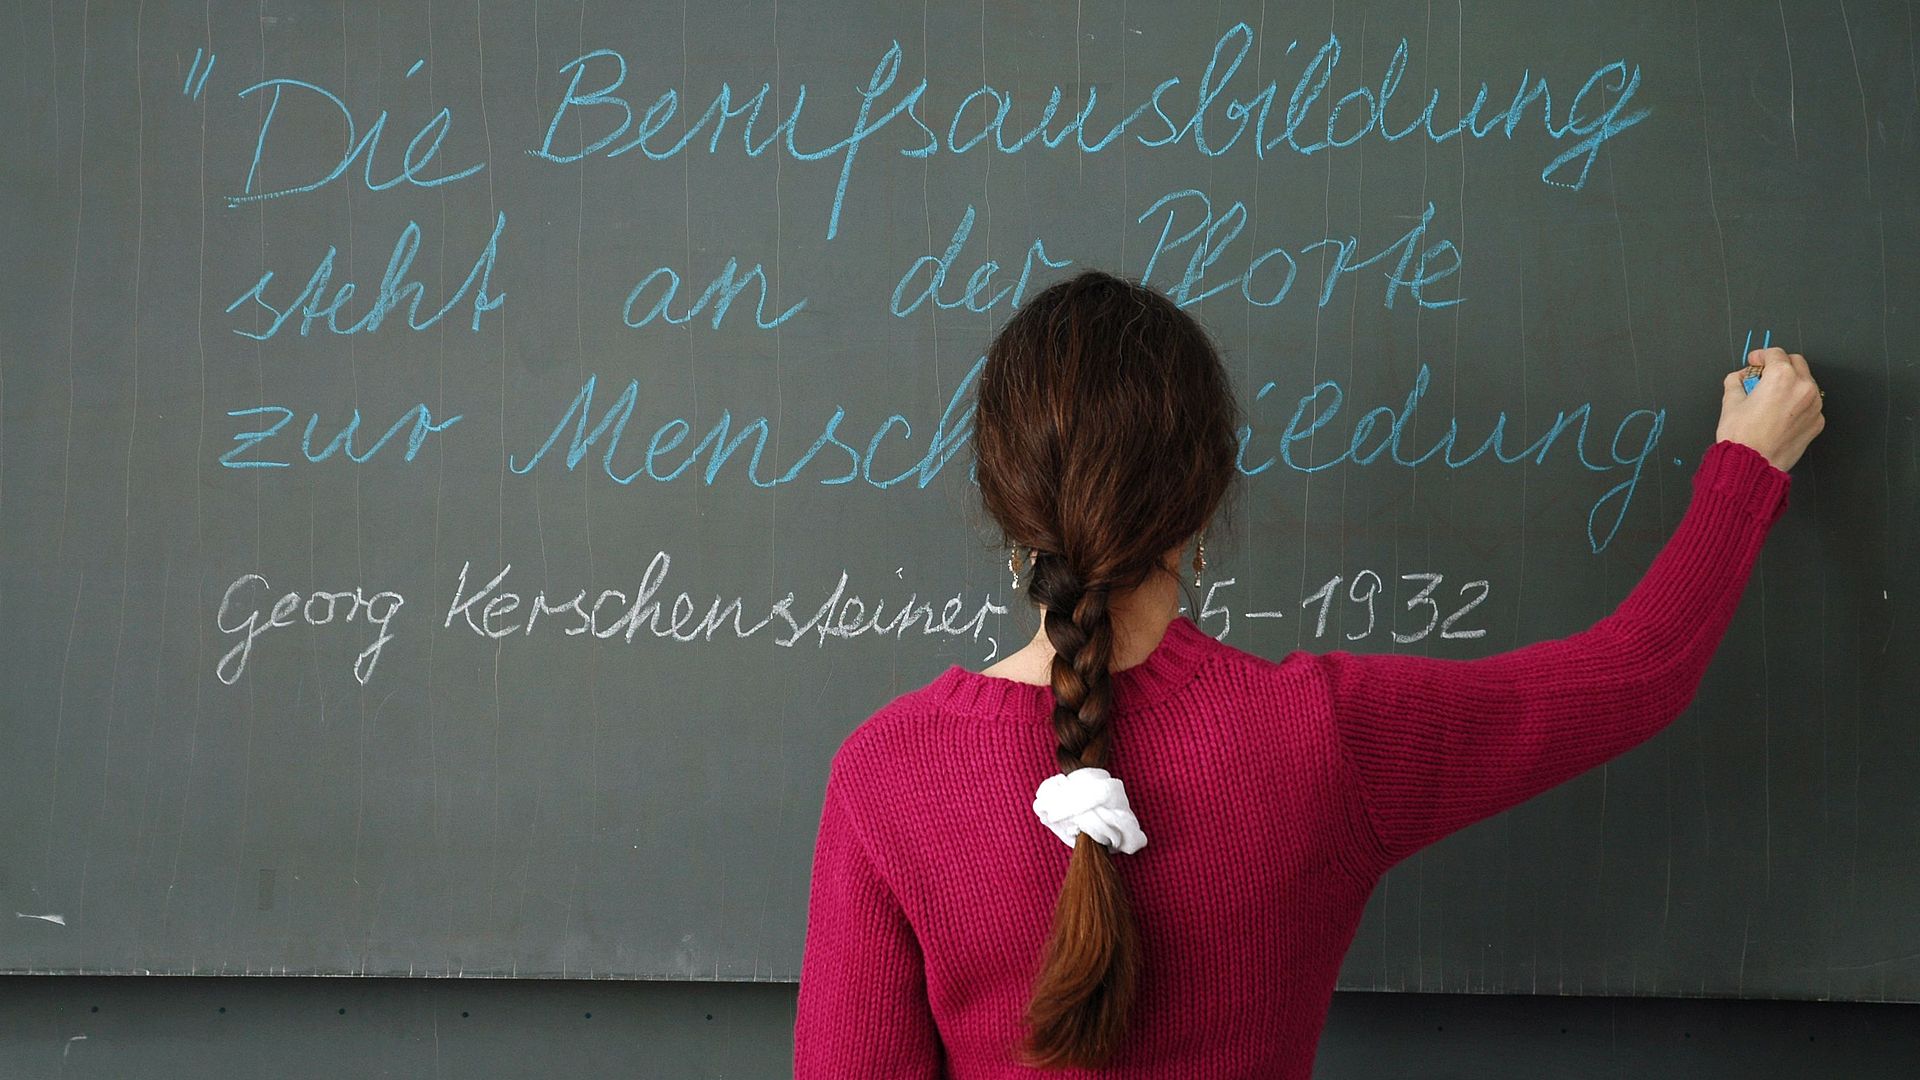 "Die Berufsausbildung
steht an der Pforte
zur Mensch ildung."
Georg Kerschensteiner, 5 – 1932